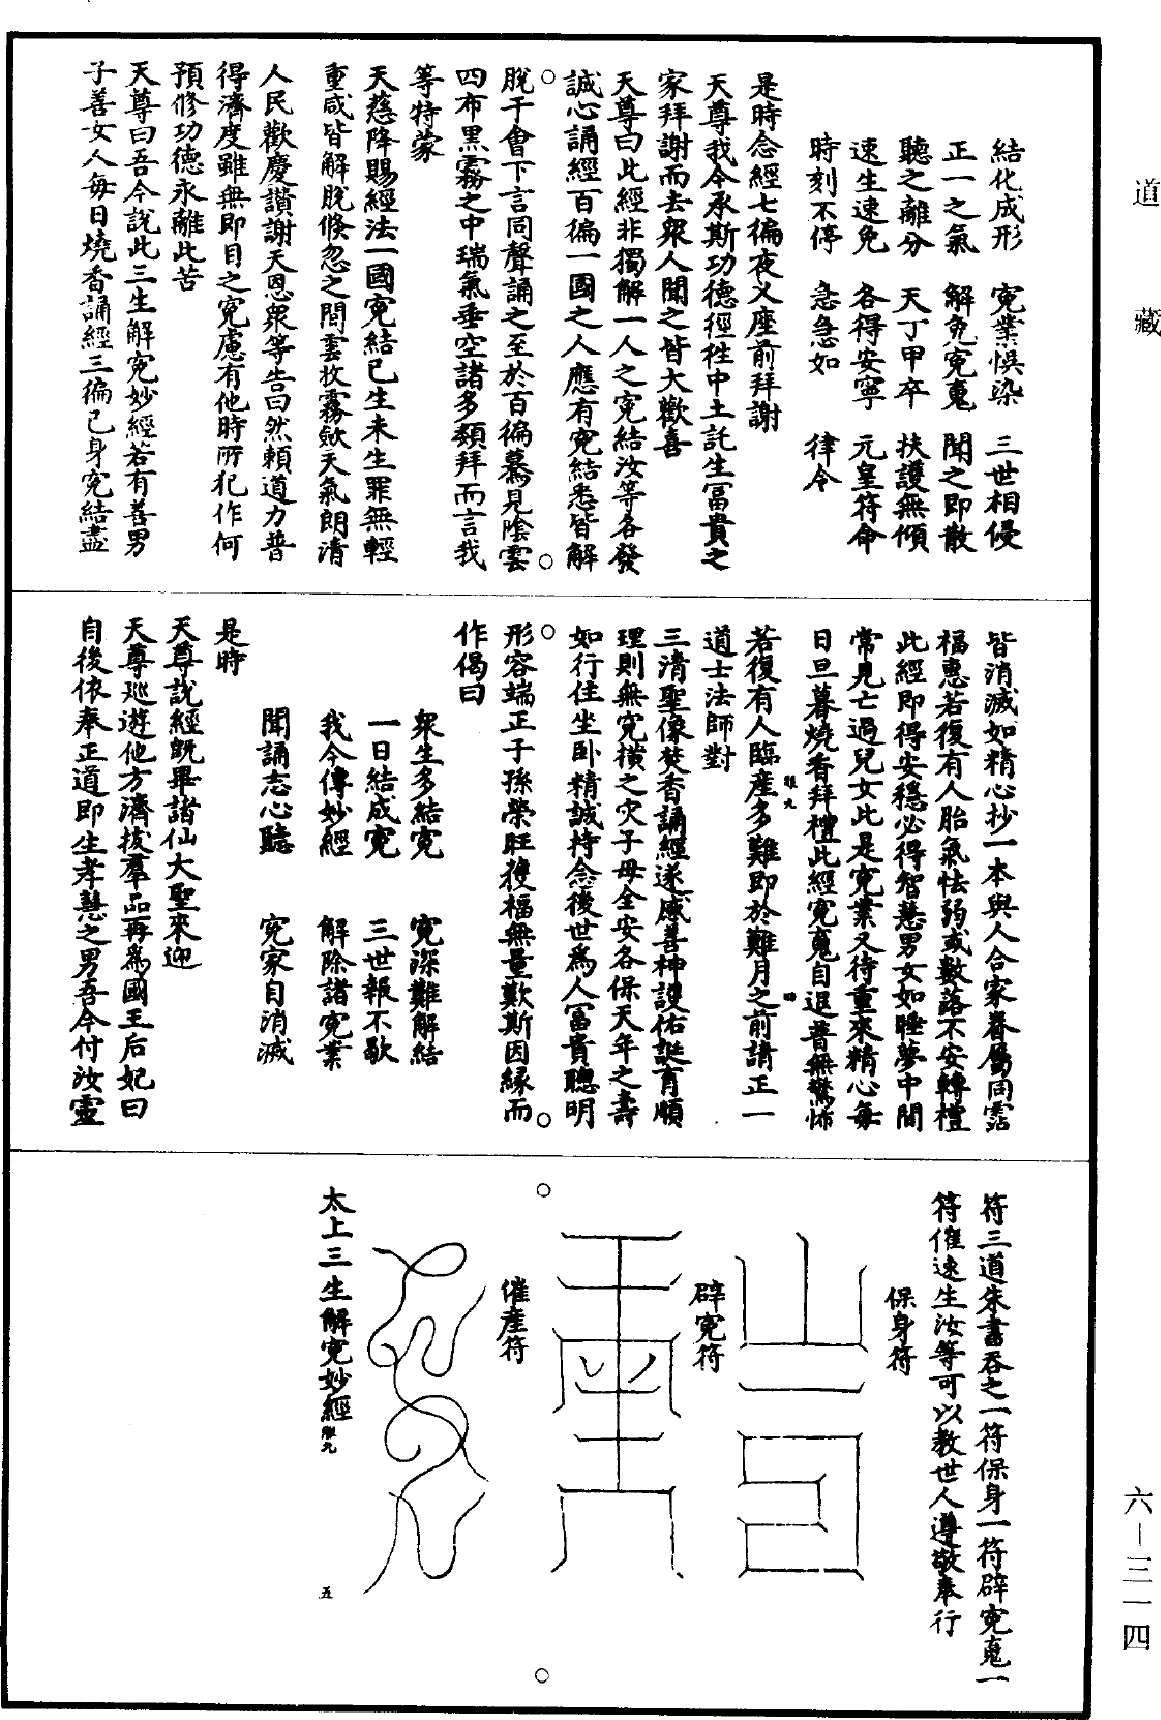 道藏
結化成形　寃業悞染　三世相侵
正一之氣　解免寃䰟　聞之即散
聽之離分　天丁甲卒　扶護無傾
速生速免　各得安寧　元皇符命
時刻不停　急急如　律令
是時念經七徧夜乂座前拜謝
天尊我今承斯功德徑往中土託生冨貴之
家拜謝而去衆人聞之皆大歡喜
天尊曰此經非獨解一人之寃結汝等各發
誠心誦經百徧一國之人應有寃結悉皆解
脫于會下言同聲誦之至於百徧驀見陰雲
四布黑霧之中瑞氣垂空諸多類拜而言我
等特蒙
天慈降賜經法一國寃結已生未生罪無輕
重咸皆解脫倐忽之間雲收霧歛天氣朗清
人民歡慶讚謝天恩衆等告曰然賴道力普
得濟度雖無即目之寃慮有他時所犯作何
預修功德永離此苦
天尊曰吾今說此三生解寃妙經若有善男
子善女人每日燒香誦經三徧己身寃結盡
皆消滅如精心抄一本與人合家眷屬同霑
福惠若復有人胎氣怯弱或數落不安轉禮
此經即得安穩必得智慧男女如睡夢中間
常見亡過兒女此是寃業又待重來精心每
日旦暮燒香拜禮此經寃䰟自退普無驚怖
若復有人臨産多難即於難月之前請正一
道士法師對
三清聖像焚香誦經遂感善神護佑誕育順
理則無寃橫之灾子母全安各保天年之壽
如行住坐卧精誠持念後世爲人冨貴聰明
形容端正子孫榮旺獲福無量歎斯因緣而
作偈曰
衆生多結寃　寃深難解結
一日結成寃　三世報不歇
我今傳妙經　解除諸寃業
聞誦志心聽　寃家自消滅
是時
天尊說經旣畢諸仙大聖來迎
天尊巡遊他方濟拔羣品再爲國王后妃曰
自後依奉正道即生孝慧之男吾今付汝靈
符三道朱書吞之一符保身一符辟寃䰟一
符催速生汝等可以教世人遵敬奉行
保身符
辟寃符
催産符
太上三生解寃妙經
五
六－三一四